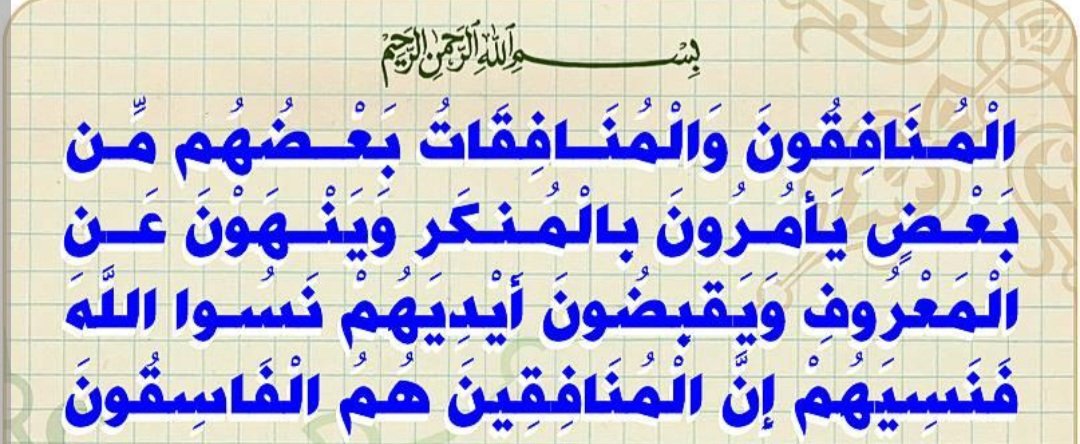 بِسْمِ اللَّهِ الرَّحْمَٰنِ الرَّحِيمِ
الْمُنَافِقُونَ وَالْمُنَافِقَاتُ بَعْضُهُم مِّن
بَعْضٍ يَأْمُرُونَ بِالْمُنكَرِ وَيَنْهَوْنَ عَنِ
الْمَعْرُوفِ وَيَقْبِضُونَ أَيْدِيَهُمْ نَسُوا اللَّهَ
فَنَسِيَهُمْ إِنَّ الْمُنَافِقِينَ هُمُ الْفَاسِقُونَ